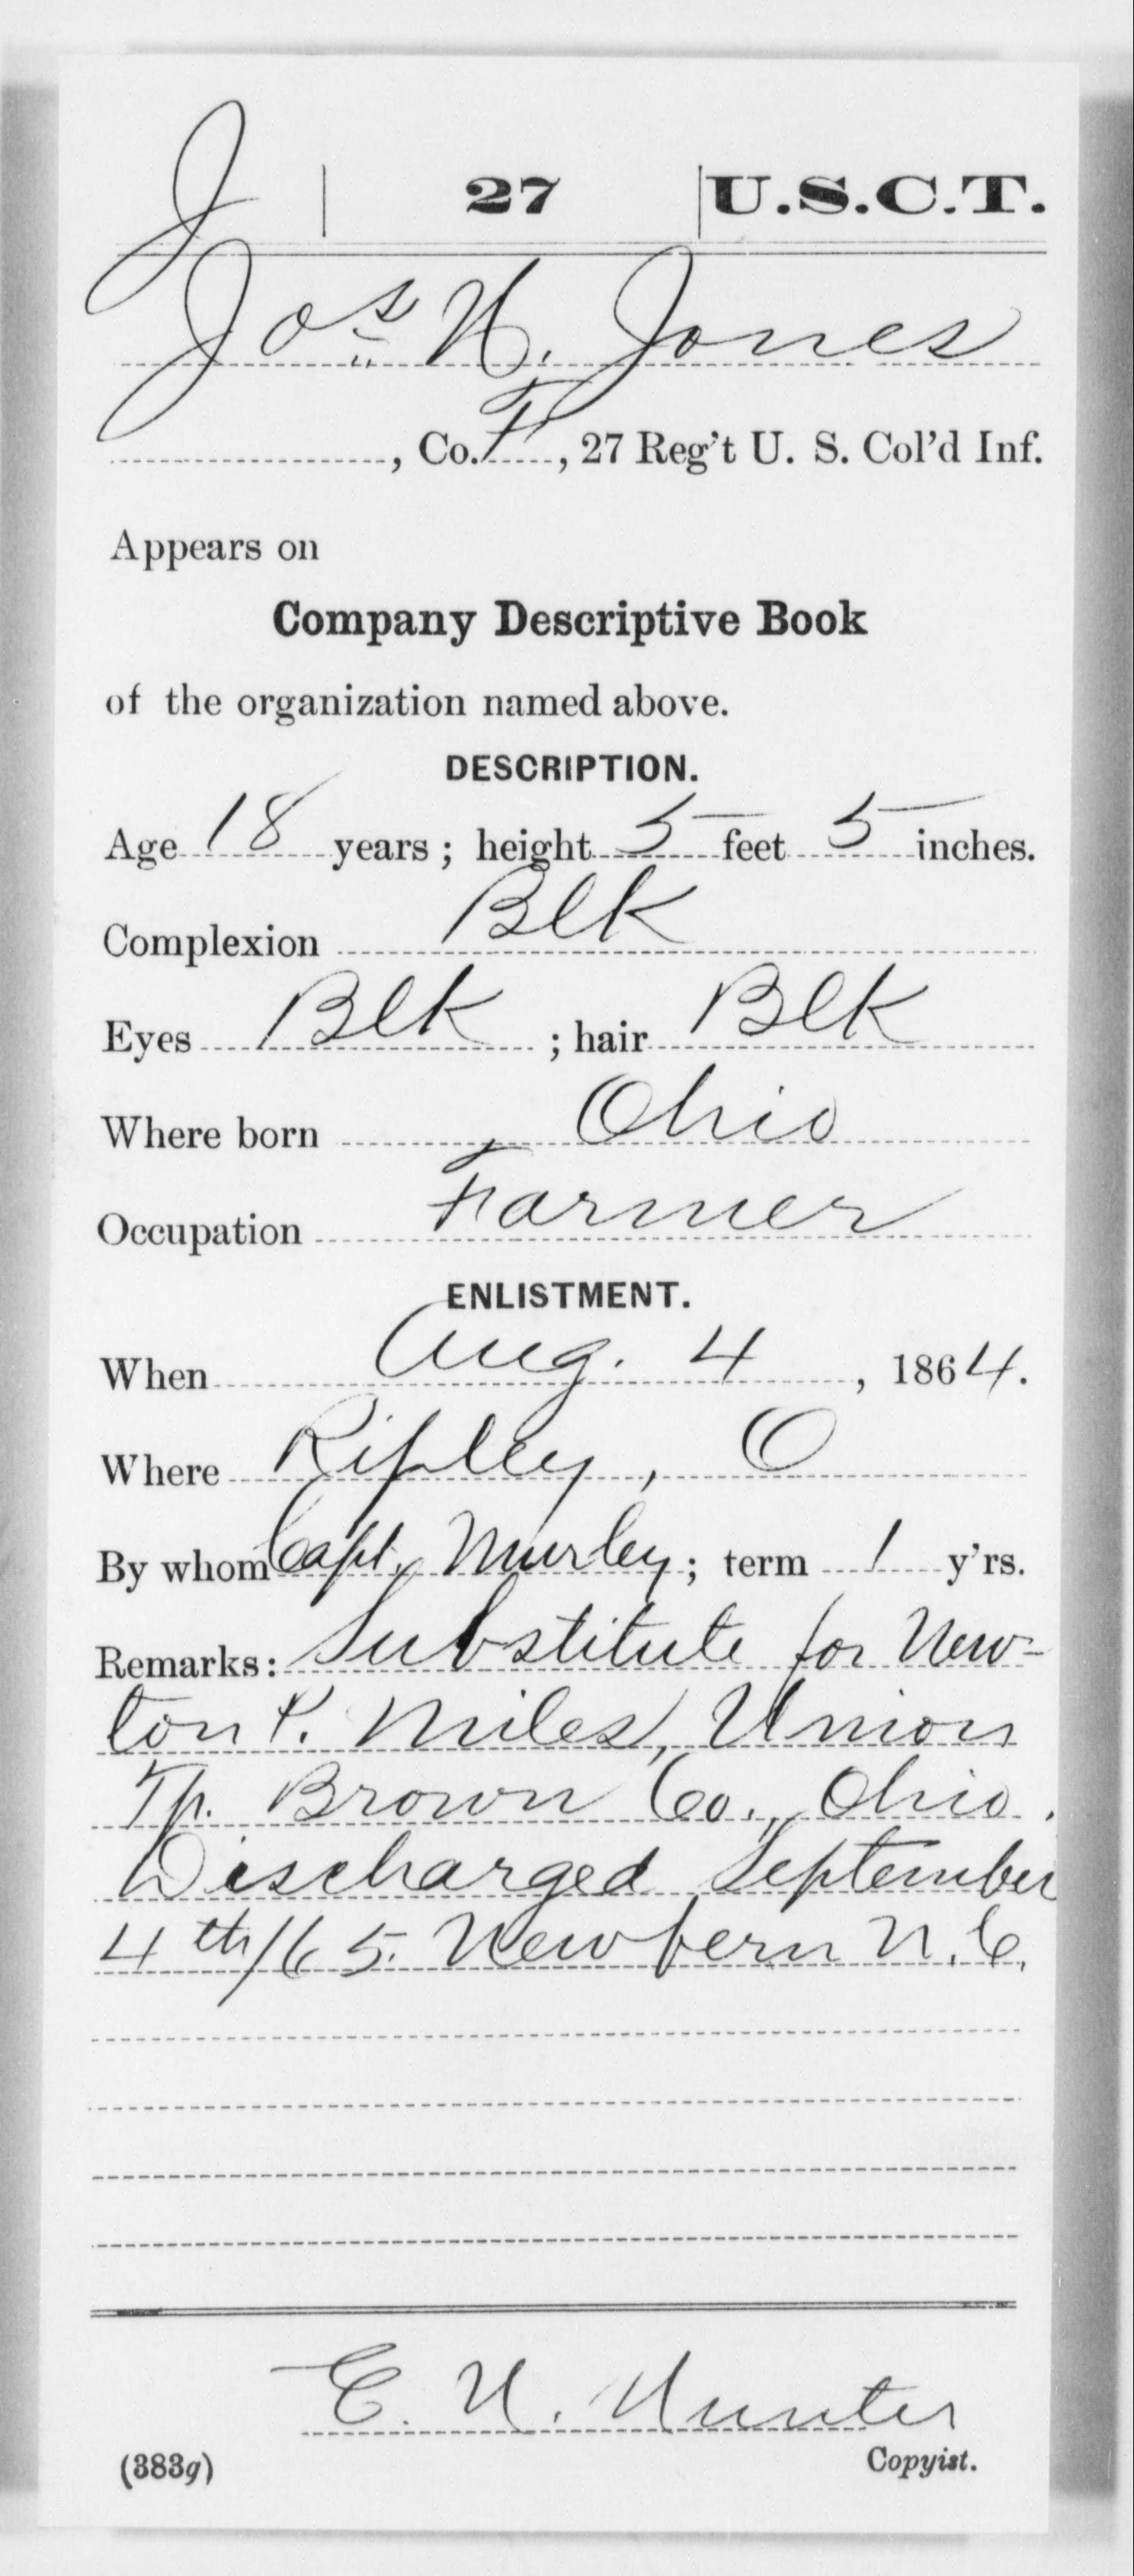 J | 27 | U.S.C.T.
Jos. H. Jones
, Co. F, 27 Reg't U. S. Col'd Inf.
Appears on
Company Descriptive Book
of the organization named above.
DESCRIPTION.
Age 18 years; height 5 feet 5 inches.
Complexion Blk
Eyes Blk; hair Blk
Where born , Ohio
Occupation Farmer
ENLISTMENT.
When Aug. 4, 1864.
Where Ripley, O
By whom Capt. Murley; term 1 y'rs.
Remarks: Substitute for New-
ton P. Miles, Union
Tp. Brown Co., Ohio.
Discharged September
4th/65. Newbern N.C.
C. H. Hunter
(383g) Copyist.